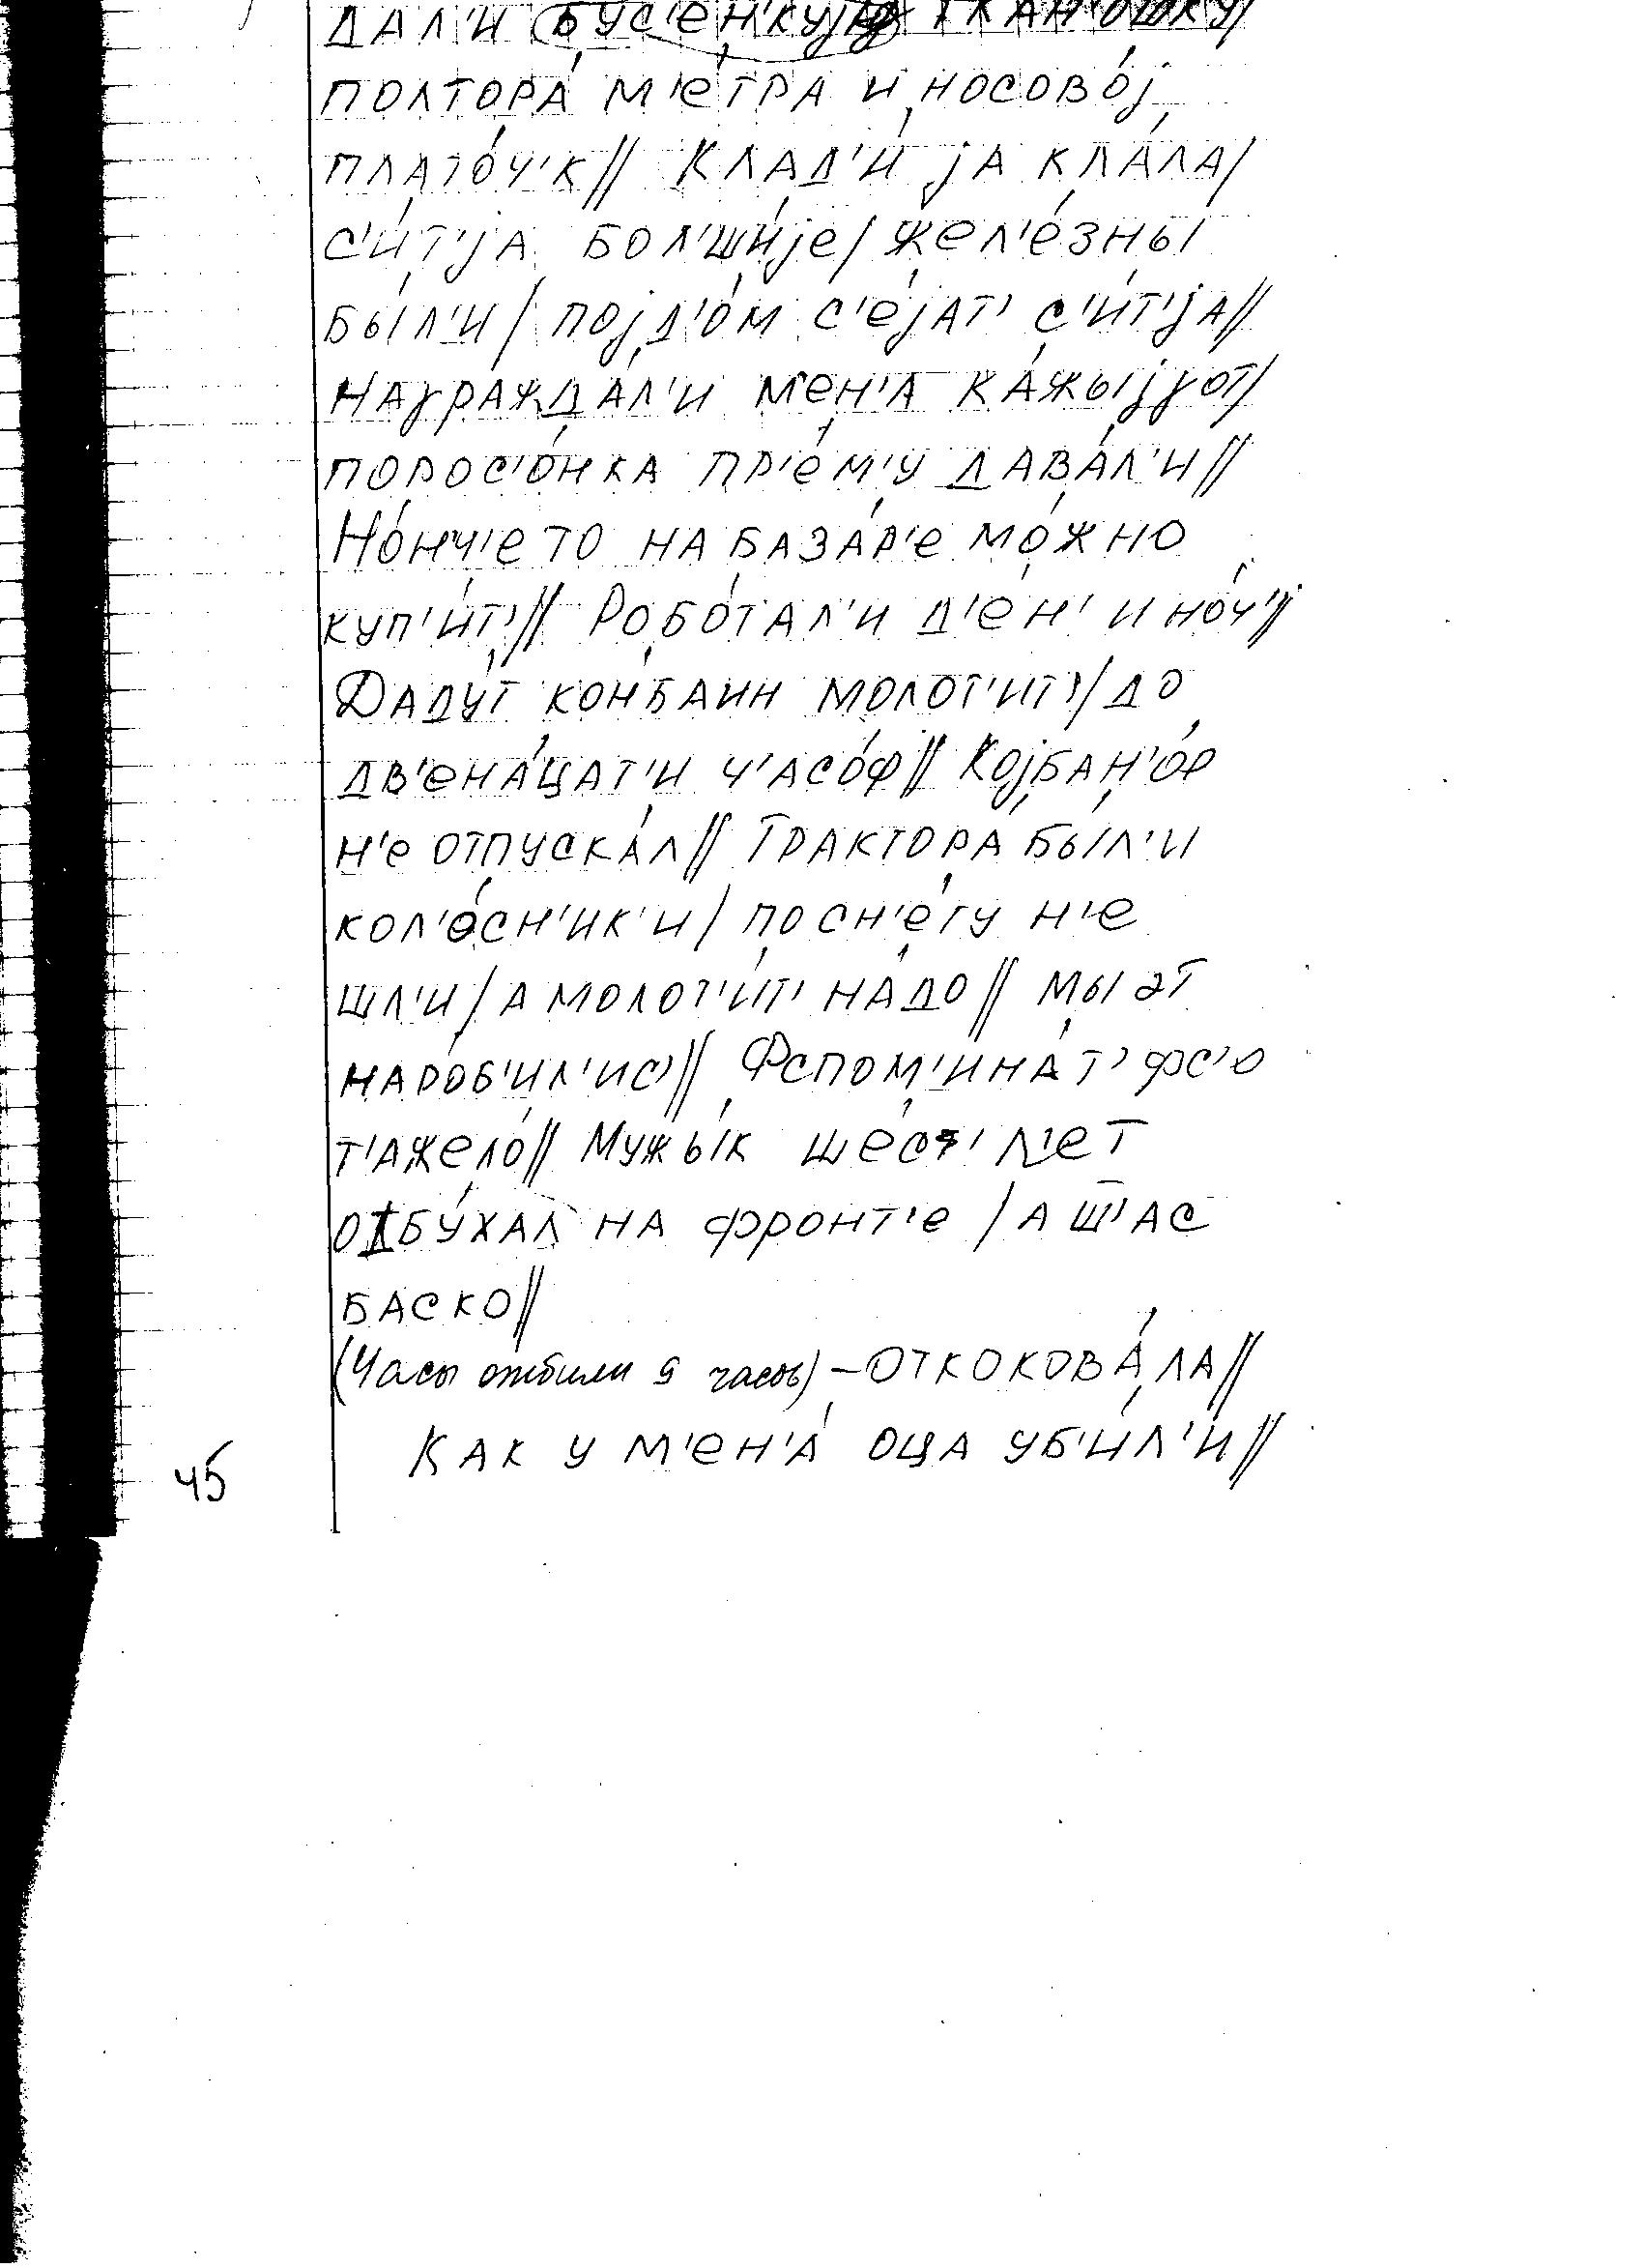 дал'и бус'ен'кују ткан'ошку/
полтора́ м'е́тра и носово́ј
плато́ч'к// Клад'и́ ја кла́ла/
с'и́т'ја бол'ши́је/ жел'е́зны
бы́л'и/ појд'о́м с'е́јат' с'и́т'ја//
Наɣражда́л'и м'ен'а ка́жыјɣот/
порос'о́нка пр'е́м'у дава́л'и//
Но́нч'е то на база́р'е мо́жно
куп'и́т'// Робо́тал'и д'ен' и ноч'//
Даду́т конба́ин молот'ит'/ до
дв'ена́цат'и ч'асо́ф// Којбан'о́р
н'е отпуска́л// Трактора́ бы́л'и
кол'о́сн'ик'и/ по сн'е́гу н'е
шл'и/ а молот'и́т' на́до// мы эт
наро́б'ил'ис'// Фспом'ина́т' фс'о
т'ажело́// Мужы́к шес'т' л'ет
отбу́хал на фронт'е /а ш̅'ас
баско//
(Часы отбили 9 часов) – откокова́ла//
45 Как у м'ен'а́ оца уб'и́л'и//